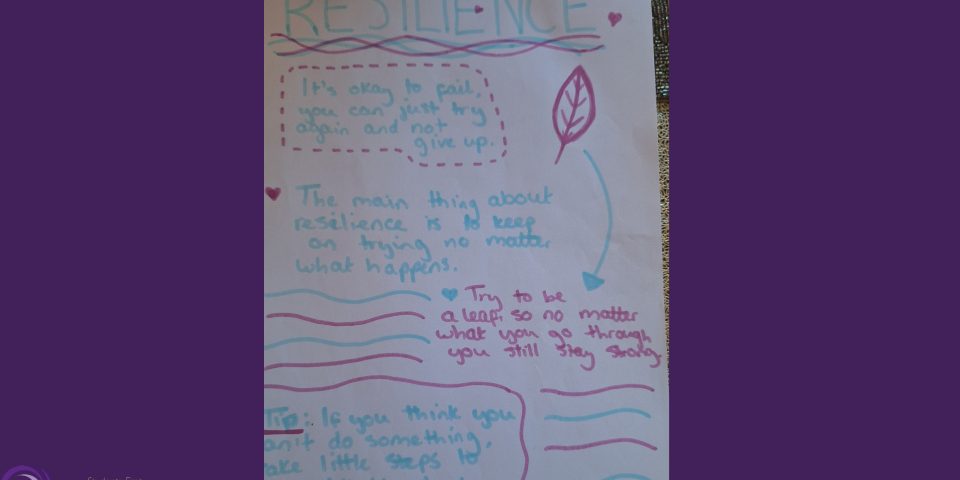 RESILIENCE
It's okay to fail,
you can just try
again and not
give up.
The main thing about
resilience is to keep
on trying no matter
what happens.
Try to be
a leaf, so no matter
what you go through
you still stay strong.
Tip: If you think you
an't do something,
ake little steps to